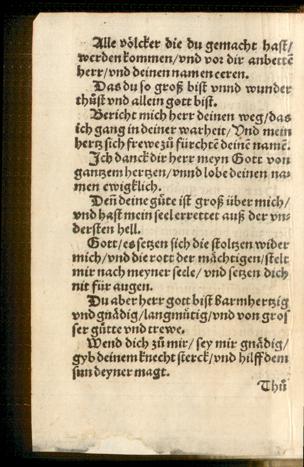 Alle völcker die du gemacht hast/
werden kommen/vnd vor dir anbettē
herr/vnd deinen namen eeren.
Das du so groß bist vnnd wunder
thůst vnd allein gott bist.
Bericht mich herr deinen weg/das
ich gang in deiner warheit/Vnd mein
hertz sich frewe zů fürchtē deinē namē.
Ich danck dir herr meyn Gott von
gantzem hertzen/vnnd lobe deinen na-
men ewigklich.
Deñ deine güte ist groß über mich/
vnd hast mein seel errettet auß der vn-
dersten hell.
Gott/es setzen sich die stoltzen wider
mich/vnd die rott der mächtigen/stelt
mir nach meyner seele/vnd setzen dich
nit für augen.
Du aber herr gott bist Barmhertzig
vnd gnädig/langmütig/vnd von gros
ser gütte vnd trewe.
Wend dich zů mir/sey mir gnädig/
gyb deinem knecht sterck/vnd hilff dem
sun deyner magt.
Thů